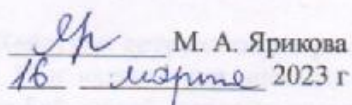 М. А. Ярикова
16 марта 2023 г